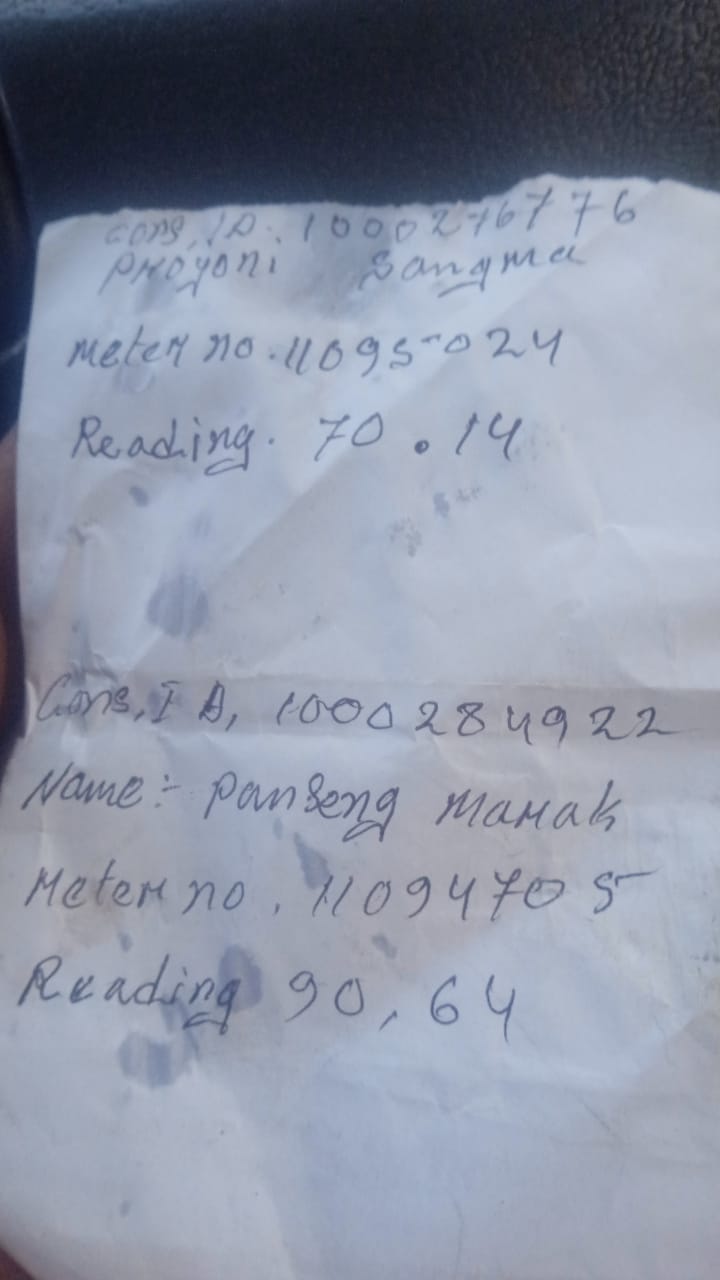 Cons, ID. 1000276776
Proyoni Sangma
Meter no. 11095024
Reading. 70.14
Cons, ID, 1000284922
Name:- Panseng Marak
Meter no. 11094705
Reading 90,64